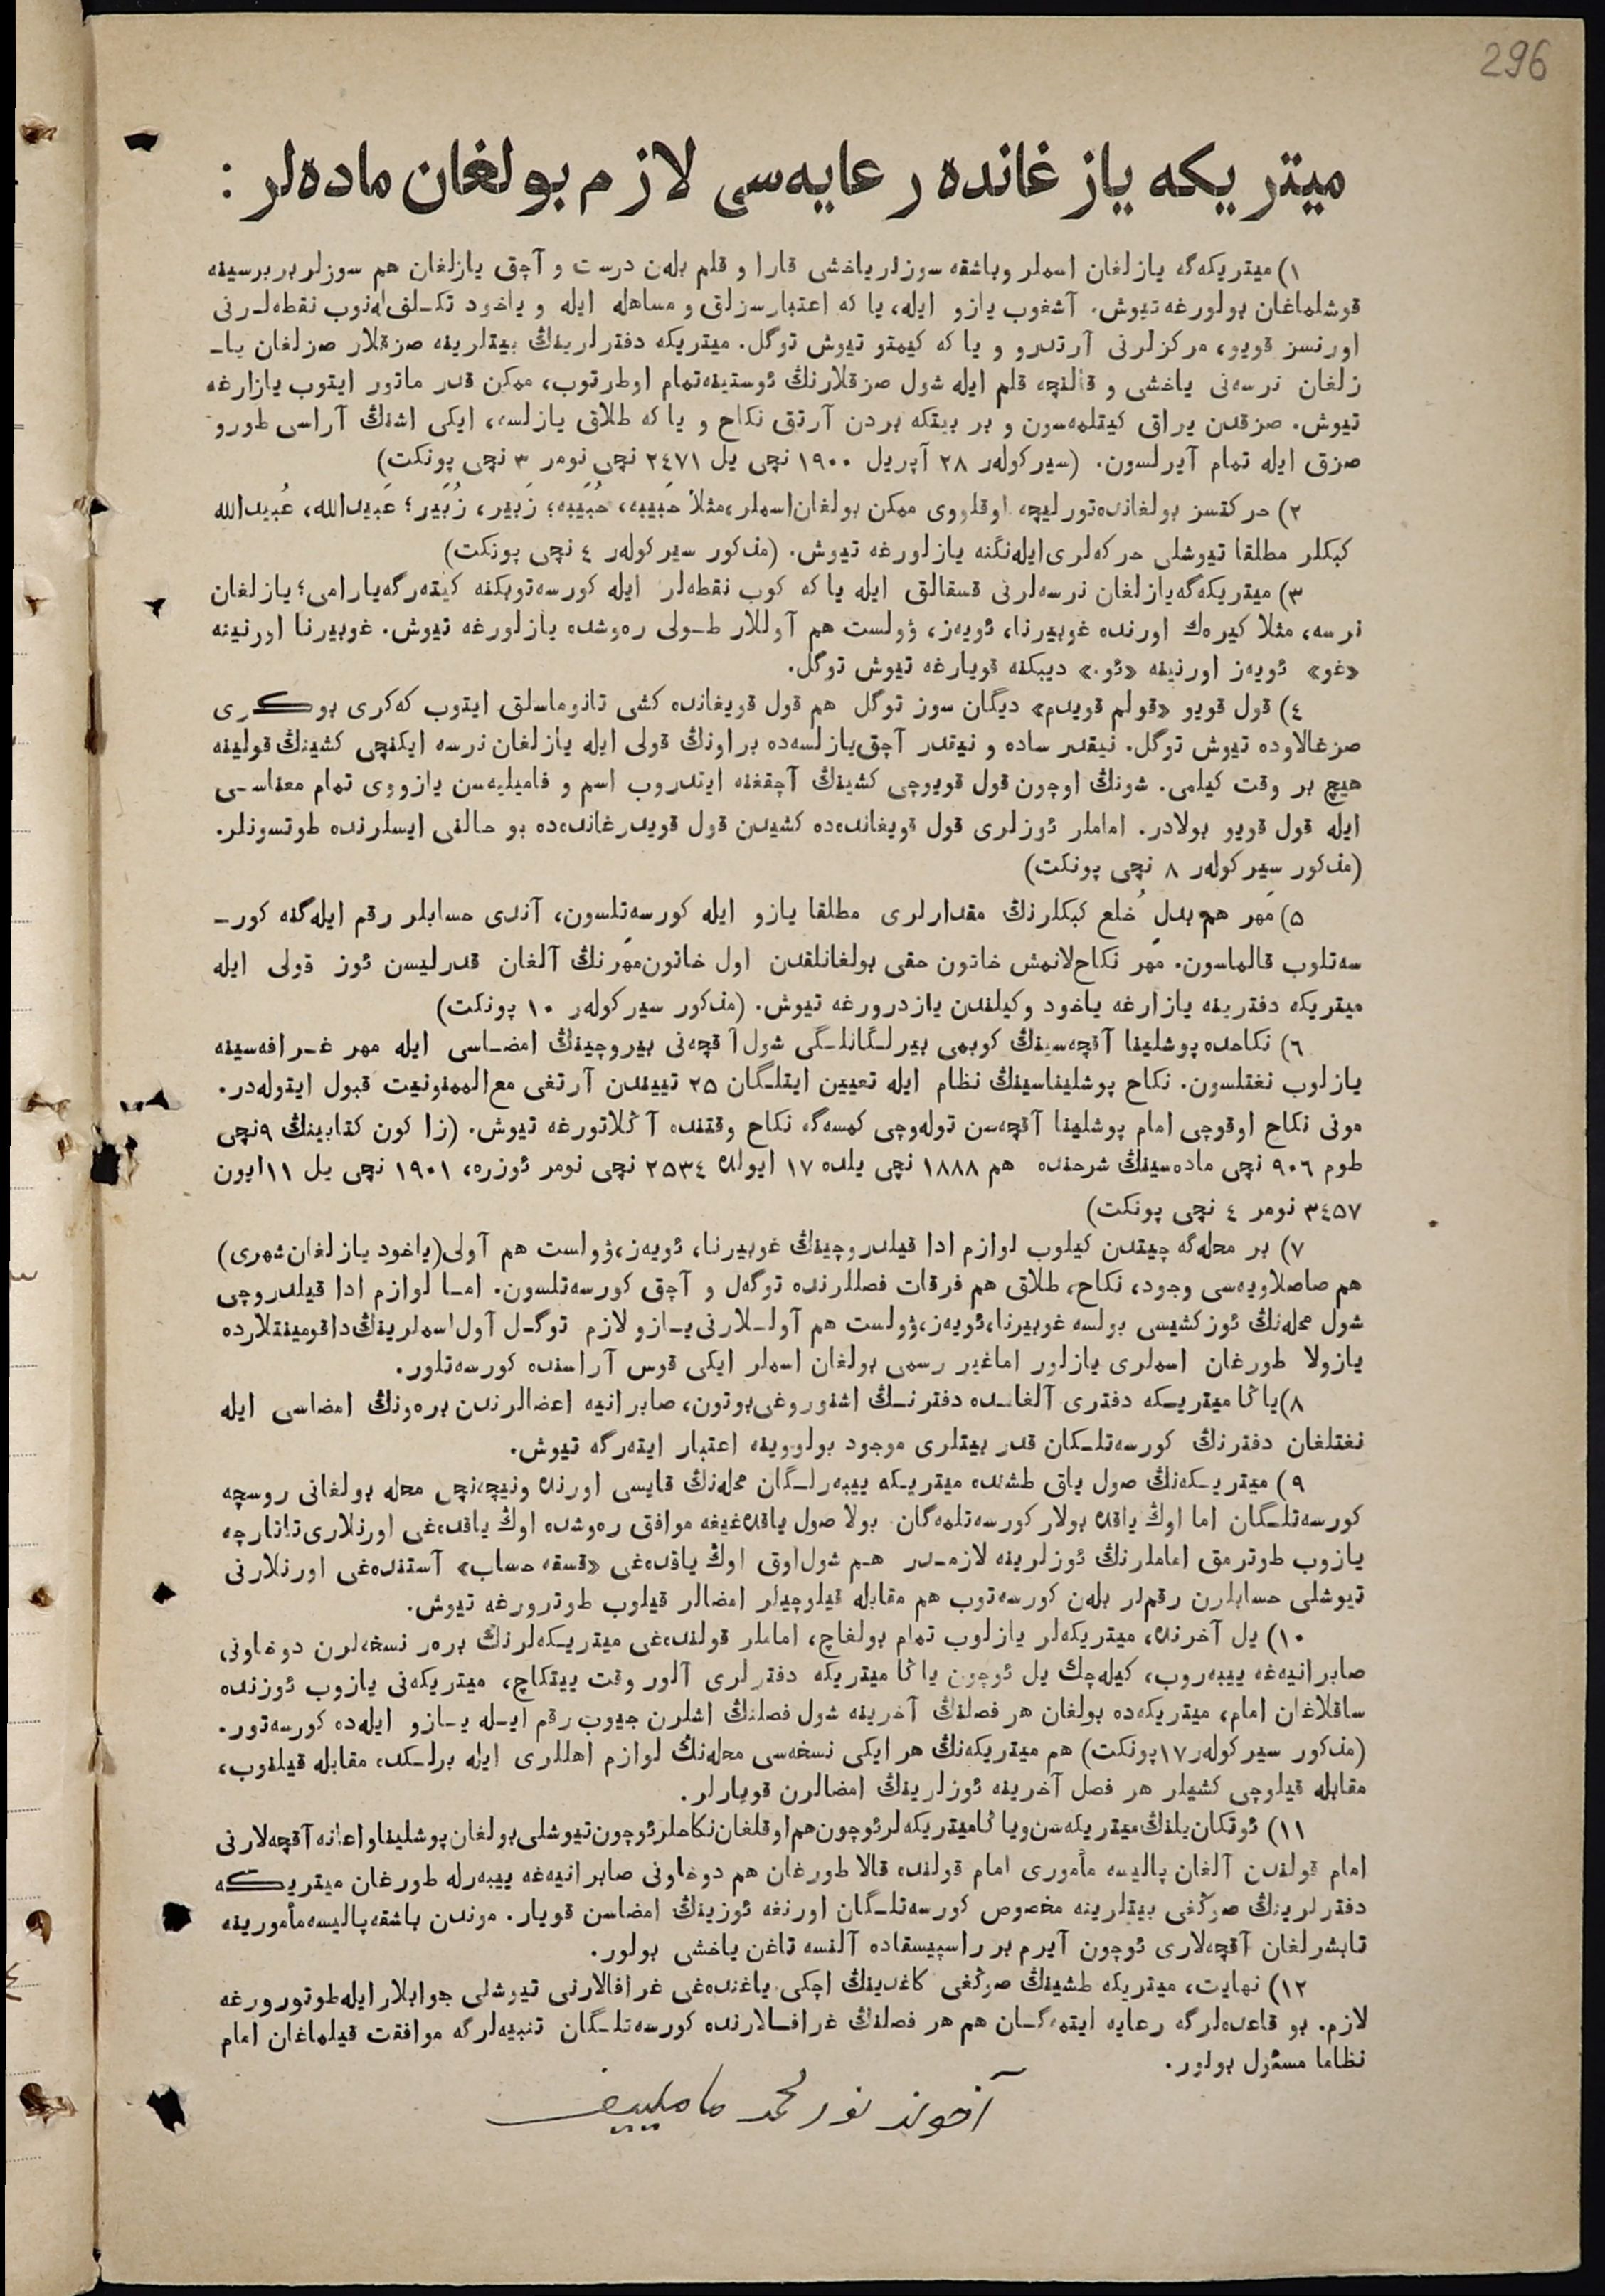 296
ميتريكه يازغانده رعايه‌سى لازم بولغان ماده‌لر :
١) ميتريكه‌گه يازلغان اسملر وباشقه سوزلر ياخشى قارا و قلم بلەن درست و آچق يازلغان هم سوزلر بربرسينه
قوشلماغان بولورغه تيوش. آشغوب يازو ايله، يا كه اعتبارسزلق و مساهله ايله و ياخود تكـلف‌ له‌نوب نقطه‌لـرنى
اورنسز قويو، مركزلرنى آرتدرو و يا كه كيمتو تيوش توگل. ميتريكه دفترلرينڭ بيتلرينه صزقلار صزلغان يا-
زلغان نرسه‌نى ياخشى و قالنچه قلم ايله شول صزقلارنڭ ئوستينه‌تمام اوطرتوب، ممكن قدر ماتور ايتوب يازارغه
تيوش. صزقدن يراق كيتلمه‌سون و بر بيتكه بردن آرتق نكاح و يا كه طلاق يازلسه، ايكى اشنڭ آراسى طورو
صزق ايله تمام آيرلسون. (سيركولەر ٢٨ آپريل ١٩٠٠ نچى يل ٢٤٧١ نچى نومر ٣ نچى پونكت)
٢) حركتسز بولغانده‌تورليچه اوقلووى ممكن بولغان‌اسملر،مثلا حَبيبه، حُبَيبه؛ زَبير، زُبَير؛ عَبيدالله، عُبيدالله
كبكلر مطلقا تيوشلى حركه‌لرى‌ايله‌نگنه يازلورغه تيوش. (مذكور سيركولەر ٤ نچى پونكت)
٣) ميتريكه‌گه‌يازلغان نرسه‌لرنى قسقالق ايله يا كه كوب نقطه‌لر ايله كورسه‌توبكنه كيته‌رگه‌يارامى؛ يازلغان
نرسه، مثلا كيره‌ك اورنده غوبيرنا، ئويه‌ز، ۋولست هم آوللار طـولى ره‌وشده يازلورغه تيوش. غوبيرنا اورنينه
«غو» ئويه‌ز اورنينه «ئو.» ديبكنه قويارغه تيوش توگل.
٤) قول قويو «قولم قويدم» ديگان سوز توگل هم قول قويغانده كشى تانوماسلق ايتوب كه‌كرى بوكرى
صزغالاوده تيوش توگل. نيقدر ساده و نيتدر آچق‌يازلسه‌ده براونڭ قولى ايله يازلغان نرسه ايكنچى كشينڭ قولينه
هيچ بر وقت كيلمى. شونڭ اوچون قول قويوچى كشينڭ آچقغنه ايتدروب اسم و فاميليه‌سن يازووى تمام معناسـى
ايله قول قويو بولادر. اماملر ئوزلرى قول قويغانده‌ده كشيدن قول قويدرغانده‌ده بو حالنى ايسلرنده طوتسونلر.
(مذكور سيركولەر ٨ نچى پونكت)
٥) مَهر هم بدلِ خُلع كبكلرنڭ مقدارلرى مطلقا يازو ايله كورسه‌تلسون، آندى حسابلر رقم ايله‌گنه كور-
سه‌تلوب قالماسون. مَهر نكاح‌لانمش خاتون حقى بولغانلقدن اول خاتون‌مَهرنڭ آلغان قدرليسن ئوز قولى ايله
ميتريكه دفترينه يازارغه ياخود وكيلندن يازدرورغه تيوش. (مذكور سيركولەر ١٠ پونكت)
٦) نكاحده پوشلينا آقچه‌سينڭ كوبمى بيرلـگانلـگى شول آقچه‌نى بيروچينڭ امضـاسى ايله مهر غـرافه‌سينه
يازلوب نغتلسون. نكاح پوشليناسينڭ نظام ايله تعيين ايتلـگان ٢٥ تييندن آرتغى مع‌الممنونيت قبول ايتوله‌در.
مونى نكاح اوقوچى امام پوشلينا آقچه‌سن توله‌وچى كمسه‌گه نكاح وقتنده آڭلاتورغه تيوش. (زاكون كتابينڭ ٩نچى
طوم ٩٠٦ نچى ماده‌سينڭ شرحنده هم ١٨٨٨ نچى يلده ١٧ ايولده ٢٥٣٤ نچى نومر ئوزره، ١٩٠١ نچى يل ١١ايون
٣٤٥٧ نومر ٤ نچى پونكت)
٧) بر محله‌گه چيتدن كيلوب لوازم ادا قيلدروچينڭ غوبيرنا، ئويه‌ز،ۋولست هم آولى(ياخود يازلغان‌شهرى)
هم صاصلاويه‌سى وجود، نكاح، طلاق هم فرقات فصللرنده توگه‌ل و آچق كورسه‌تلسون. امـا لوازم ادا قيلدروچى
شول محله‌نڭ ئوزكشيسى بولسه غوبيرنا،ئويه‌ز،ۋولست هم آولـلارنى يـازو لازم توگـل آول‌اسملرينڭ‌داقومينتلارده
يازولا طورغان اسملرى يازلور اماغير رسمى بولغان اسملر ايكى قوس آراسنده كورسه‌تلور.
٨)ياڭا ميتريـكه دفترى آلغانـده دفترنـڭ اشنوروغى‌بوتون، صابرانيه اعضالرندن بره‌ونڭ امضاسى ايله
نغتلغان دفترنڭ كورسه‌تلـكان قدر بيتلرى موجود بولووينه اعتبار ايته‌رگه تيوش.
٩) ميتريـكه‌نڭ صول ياق طشنده ميتريـكه ييبه‌رلـگان محله‌نڭ قايسى اورنده ونيچه‌نچى محله بولغانى روسچه
كورسه‌تلـگان اما اوڭ ياقده بولار كورسه‌تلمه‌گان. بولا صول ياقده‌غيغه موافق ره‌وشده اوڭ ياقده‌غى اورنلارى‌تاتارچه
يازوب طوترمق اماملرنڭ ئوزلرينه لازمـدر هـم شول‌اوق اوڭ ياقده‌غى «قسقه حساب» آستنده‌غى اورنلارنى
تيوشلى حسابلرن رقملر بلەن كورسه‌توب هم مقابله قيلوچيلر امضالر قيلوب طوترورغه تيوش.
١٠) يل آخرنده، ميتريكه‌لر يازلوب تمام بولغاچ، اماملر قولنده‌غى ميتريـكه‌لرنڭ بره‌ر نسخه‌لرن دوخاونى
صابرانيه‌غه ييبه‌روب، كيله‌چك يل ئوچون ياڭا ميتريكه دفترلرى آلور وقت ييتكاچ، ميتريكه‌نى يازوب ئوزنده
ساقلاغان امام، ميتريكه‌ده بولغان هر فصلنڭ آخرينه شول فصلنڭ اشلرن جيوب رقم ايـله يـازو ايله‌ده كورسه‌تور.
(مذكور سيركولەر١٧پونكت) هم ميتريكه‌نڭ هر ايكى نسخه‌سى محله‌نڭ لوازم اهللرى ايله برلـكده مقابله قيلنوب،
مقابله قيلوچى كشيلر هر فصل آخرينه ئوزلرينڭ امضالرن قويارلر.
١١) ئوتكان‌يلنڭ‌ميتريكه‌سن‌وياڭاميتريكه‌لرئوچون‌هم‌اوقلغان‌نكاحلرئوچون‌تيوشلى‌بولغان‌پوشلیناواعانه‌آقچه‌لارنى
امام قولندن آلغان پاليسه مأمورى امام قولنده قالا طورغان هم دوخاونى صابرانيه‌غه ييبه‌رله طورغان ميتريكه
دفترلرينڭ صوڭغى بيتلرينه مخصوص كورسه‌تلـگان اورنغه ئوزينڭ امضاسن قويار. موندن باشقه‌پاليسه‌مأمورينه
تابشرلغان آقچه‌لارى ئوچون آيرم بر راسپيسقاده آلنسه تاغن ياخشى بولور.
١٢) نهايت، ميتريكه طشينڭ صوڭغى كاغدينڭ اچكى ياغنده‌غى غرافالارنى تيوشلى جوابلارايله‌طوتورورغه
لازم. بو قاعده‌لرگه رعايه ايتمه‌گـان هم هر فصلنڭ غرافـالارنده كورسه‌تلـگان تنبيه‌لرگه موافقت قيلماغان امام
نظاما مسئول بولور.
آخوند نورمحمد ماملييف